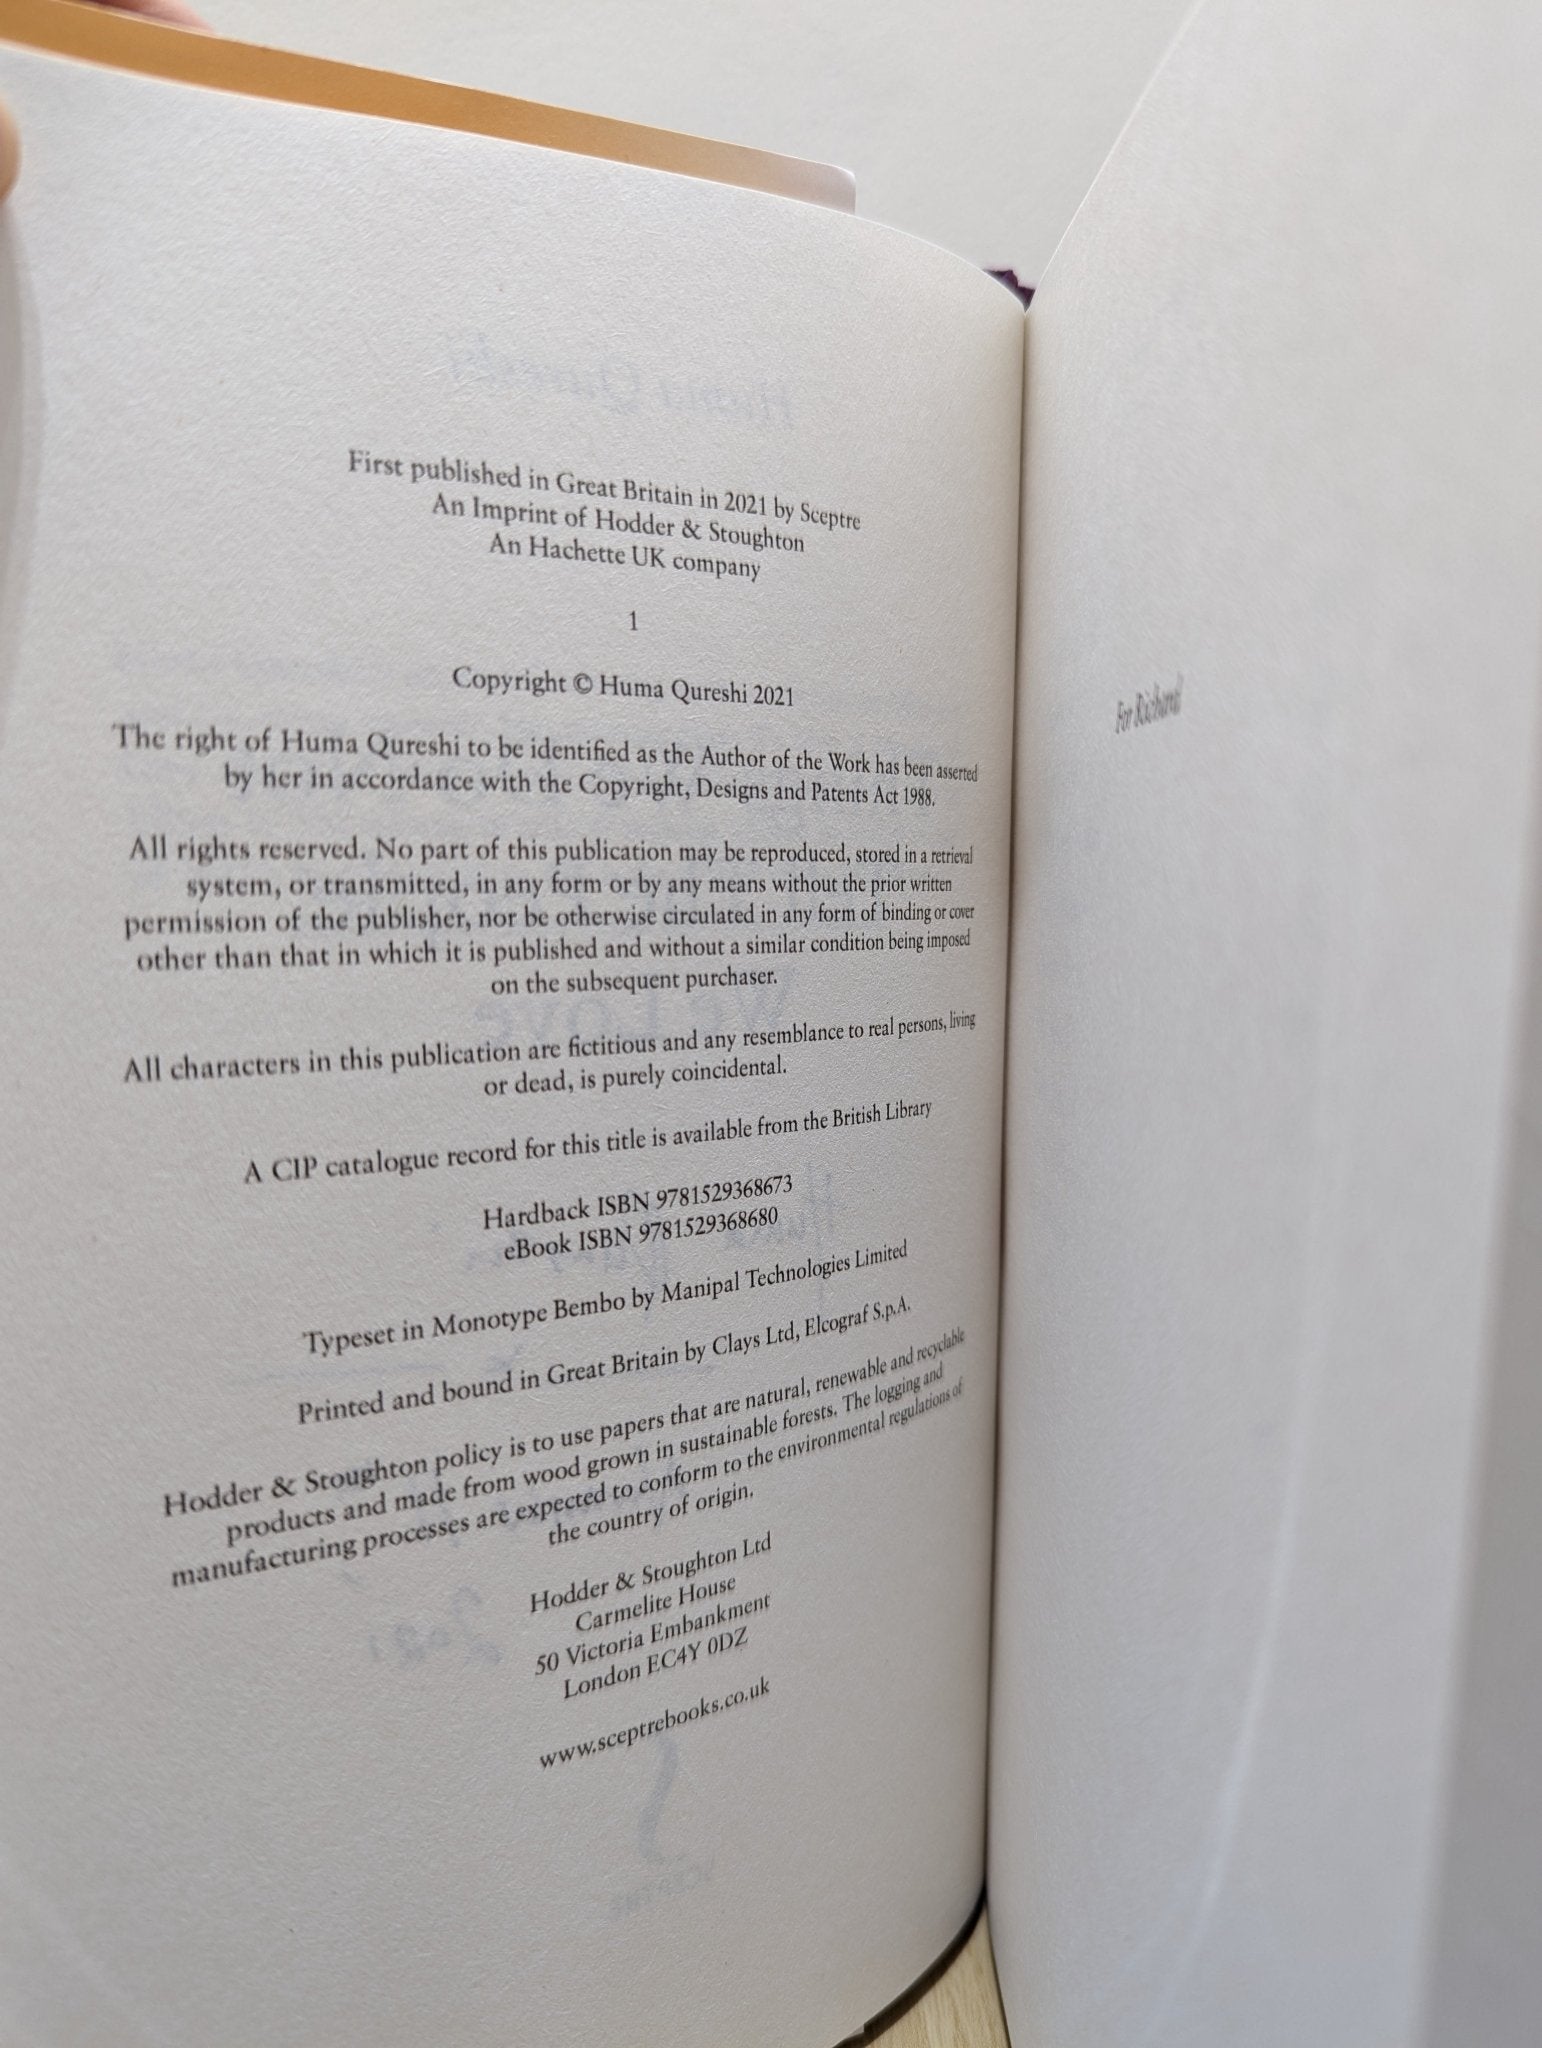 First published in Great Britain in 2021 by Sceptre
An Imprint of Hodder & Stoughton
An Hachette UK company
1
Copyright © Huma Qureshi 2021
The right of Huma Qureshi to be identified as the Author of the Work has been asserted
by her in accordance with the Copyright, Designs and Patents Act 1988.
All rights reserved. No part of this publication may be reproduced, stored in a retrieval
system, or transmitted, in any form or by any means without the prior written
permission of the publisher, nor be otherwise circulated in any form of binding or cover
other than that in which it is published and without a similar condition being imposed
on the subsequent purchaser.
All characters in this publication are fictitious and any resemblance to real persons, living
or dead, is purely coincidental.
A CIP catalogue record for this title is available from the British Library
Hardback ISBN 9781529368673
eBook ISBN 9781529368680
Typeset in Monotype Bembo by Manipal Technologies Limited
Printed and bound in Great Britain by Clays Ltd, Elcograf S.p.A.
Hodder & Stoughton policy is to use papers that are natural, renewable and recyclable
products and made from wood grown in sustainable forests. The logging and
manufacturing processes are expected to conform to the environmental regulations of
the country of origin.
Hodder & Stoughton Ltd
Carmelite House
50 Victoria Embankment
London EC4Y 0DZ
www.sceptrebooks.co.uk
For Richard